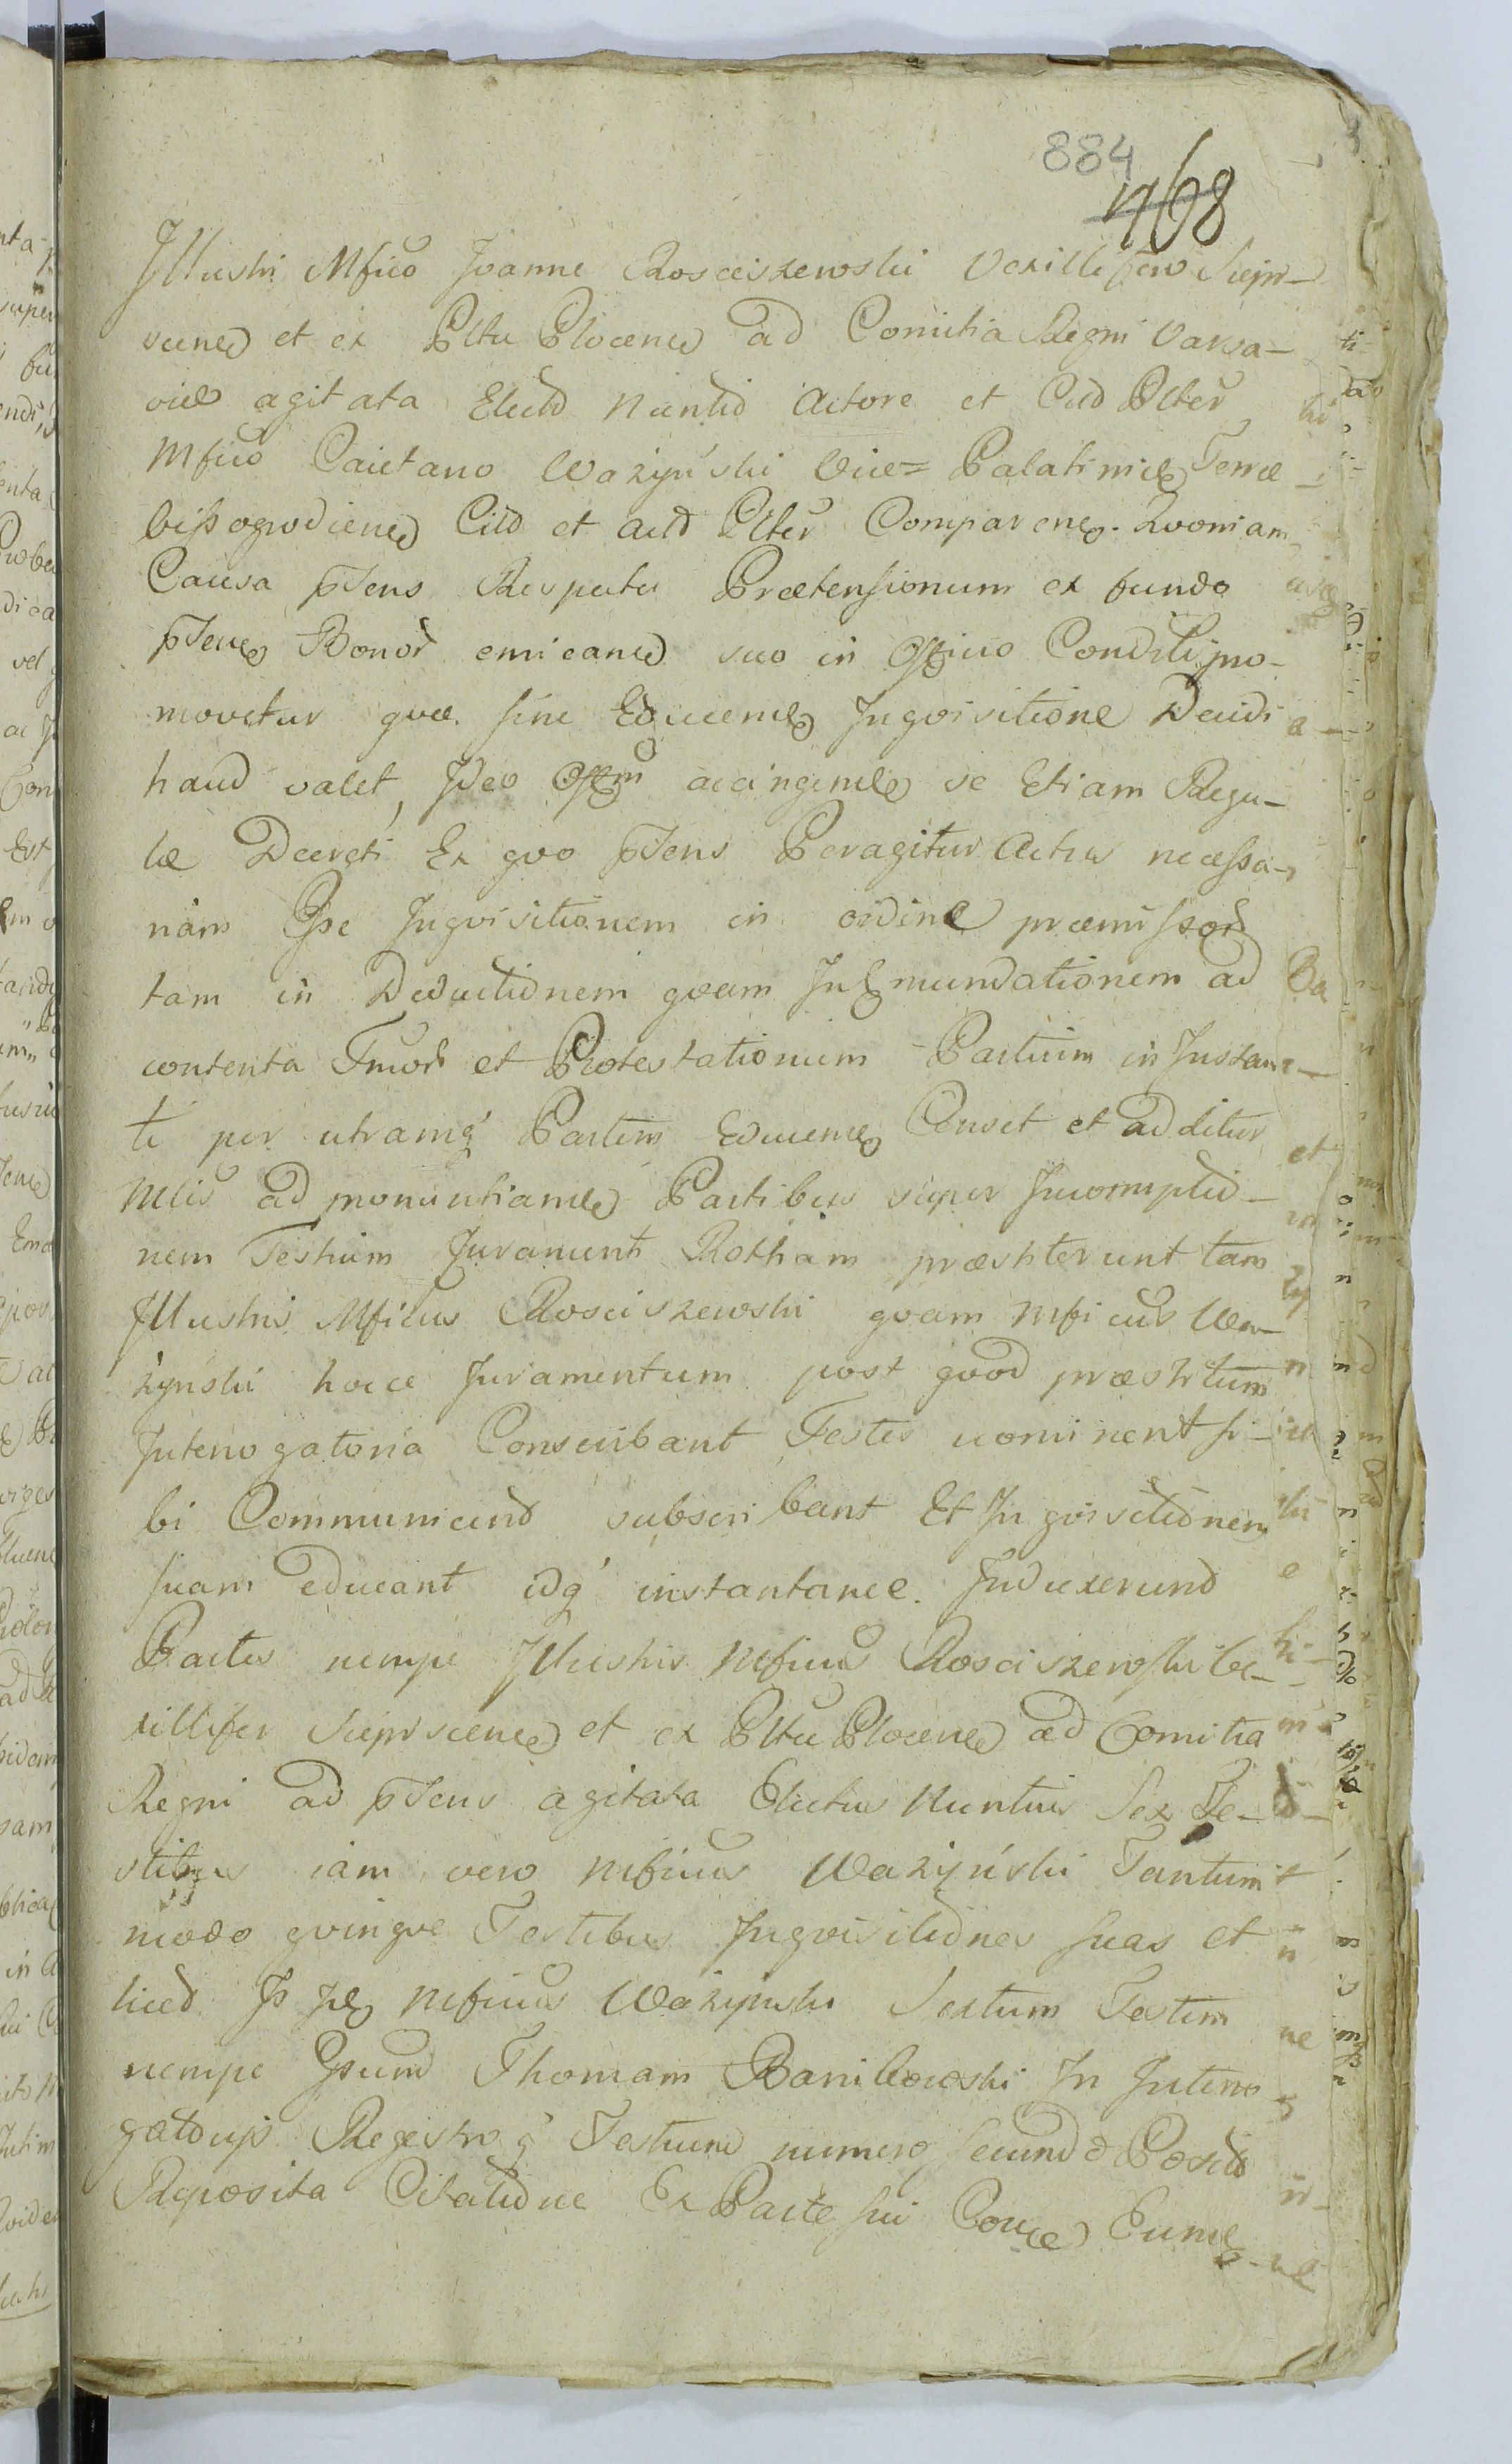 884
1768
Illustri Mfico Joanne Rosciszewski Vexillifero Sierp-
scens et ex Pltu Plocens ad Comitia Regni Varsa-
viae agitata Electo Nuntio Actore et Cito Plter
Mfico Caietano Wazyński Vice= Palatinide Terrae
Vissogrodiens Cito et Acto Plter Comparens. Qvoniam
Causa psens Respectu Praetensionum ex fundo
psens Bonor emicans suo in Officio Condescli pro-
movetur qvae sine Educenda Inqvisitione Decidi
haud valet, Ideo Offm accingendo se Etiam Regu-
lae Decreti Ex qvo psens Peragitur Actus necessa-
riam Esse Inqvisitionem in ordine praemissor
tam in Deductionem qvam Inmundationem ad
contenta Tmor et Protestationum Partium in Instan-
ti per utramq Partem Educend Censet et additur
Mtis ad pronuntiand Partibus super Incorruptio-
nem Testium Juramenti Rotham praestiterunt tam
Illustris Mficus Rosciszewski qvam Mficus Wa-
zynski hocce Juramentum post qvod praestitum
Interrogatoria Conscribant Testes nominent si-
bi Communicend subscribant Et Inqvisitionem
suam educant idq instantanee. Induxerund
Partes nempe Illustris Mficus Rosciszewski Ve-
xillifer Sierpscens et ex Pltu Plocens ad Comitia
Regni ad psens agitata Electus Nuntius Sex Te-
stibus iam vero Mficus Wazyński Tantum
modo qvinqve Testibus Inqvisitiones suas et
liced Is Mficus Wazynski Sextum Testem
nempe Gsum Thomam Bani Kowski In Interro
gatorijs Registro q Testium numero secundo Posito
Reposita Citatione Ex Parte sui Conce Eum